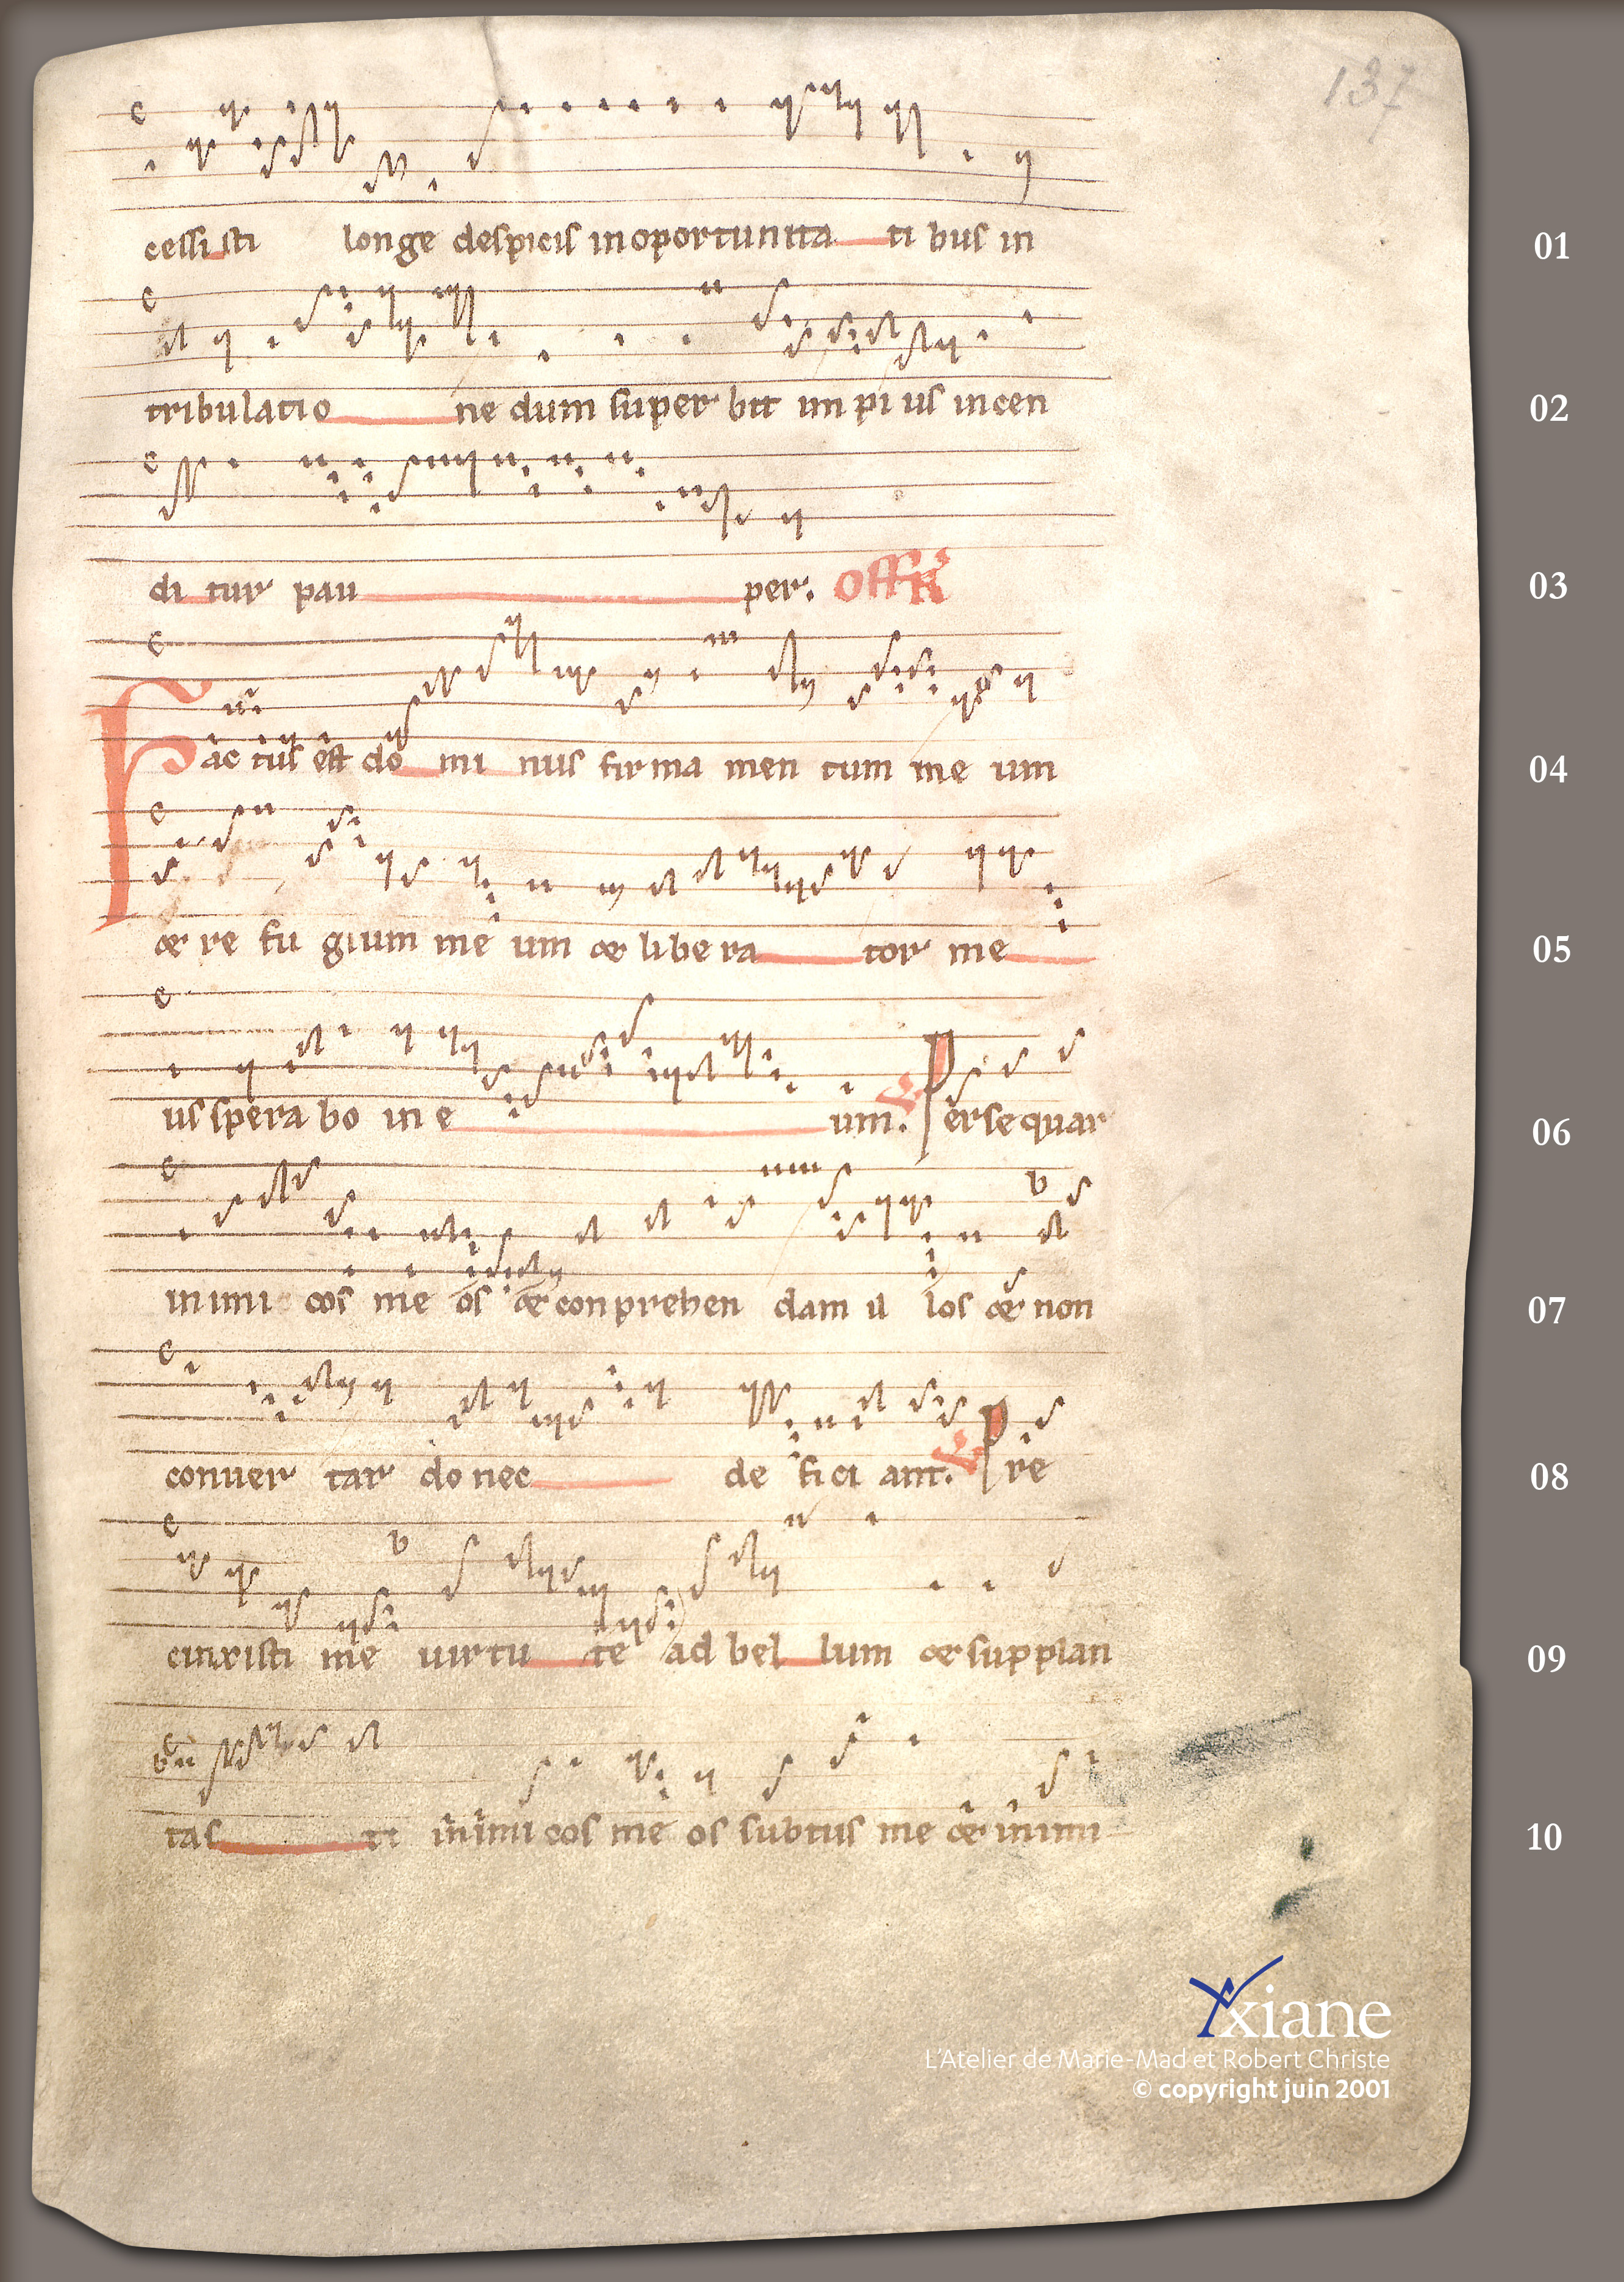 137
cessisti longe despicis in oportunita ti bus in
01
tribulatio ne dum super bit impi us incen
02
di tur pau per. Offr
03
Fac tus est do mi nus firma men tum me um
04
et re fu gium me um et libera tor me
05
us spera bo in e um. V Persequar
06
inimi cos me os et conprehen dam il los et non
07
conuer tar donec de fici ant. V Pre
08
cinxisti me uirtu te ad bel lum et supplan
09
tas ti inimicos me os subtus me et inimi
10
Yxiane
L'Atelier de Marie-Mad et Robert Christe
© copyright juin 2001